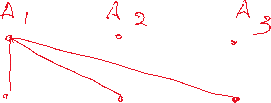 A1 A2 A3